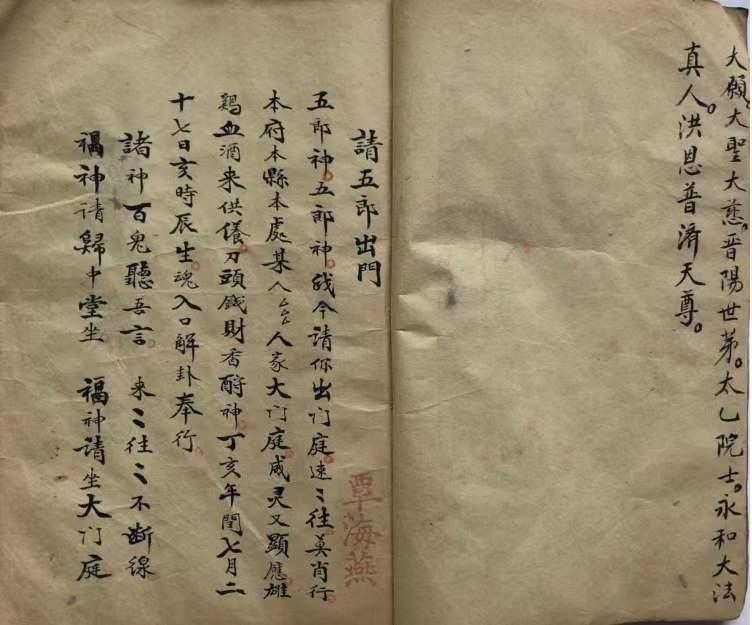 大願大聖大慈晋陽世第太乙院士永和大法
真人洪恩普濟天尊
請五郎出門
五郎神五郎神我今請你出门庭速〻往莫肖行
本府本縣本處某厶厶人家大门庭威灵又顯應雄
鷄血酒来供儀刀頭錢財香酧神丁亥年閏七月二
十七日亥時辰生魂入口解卦奉行
諸神百鬼聽吾言 来〻往〻不断線
福神请歸中堂坐 福神请坐大门庭
覃海燕